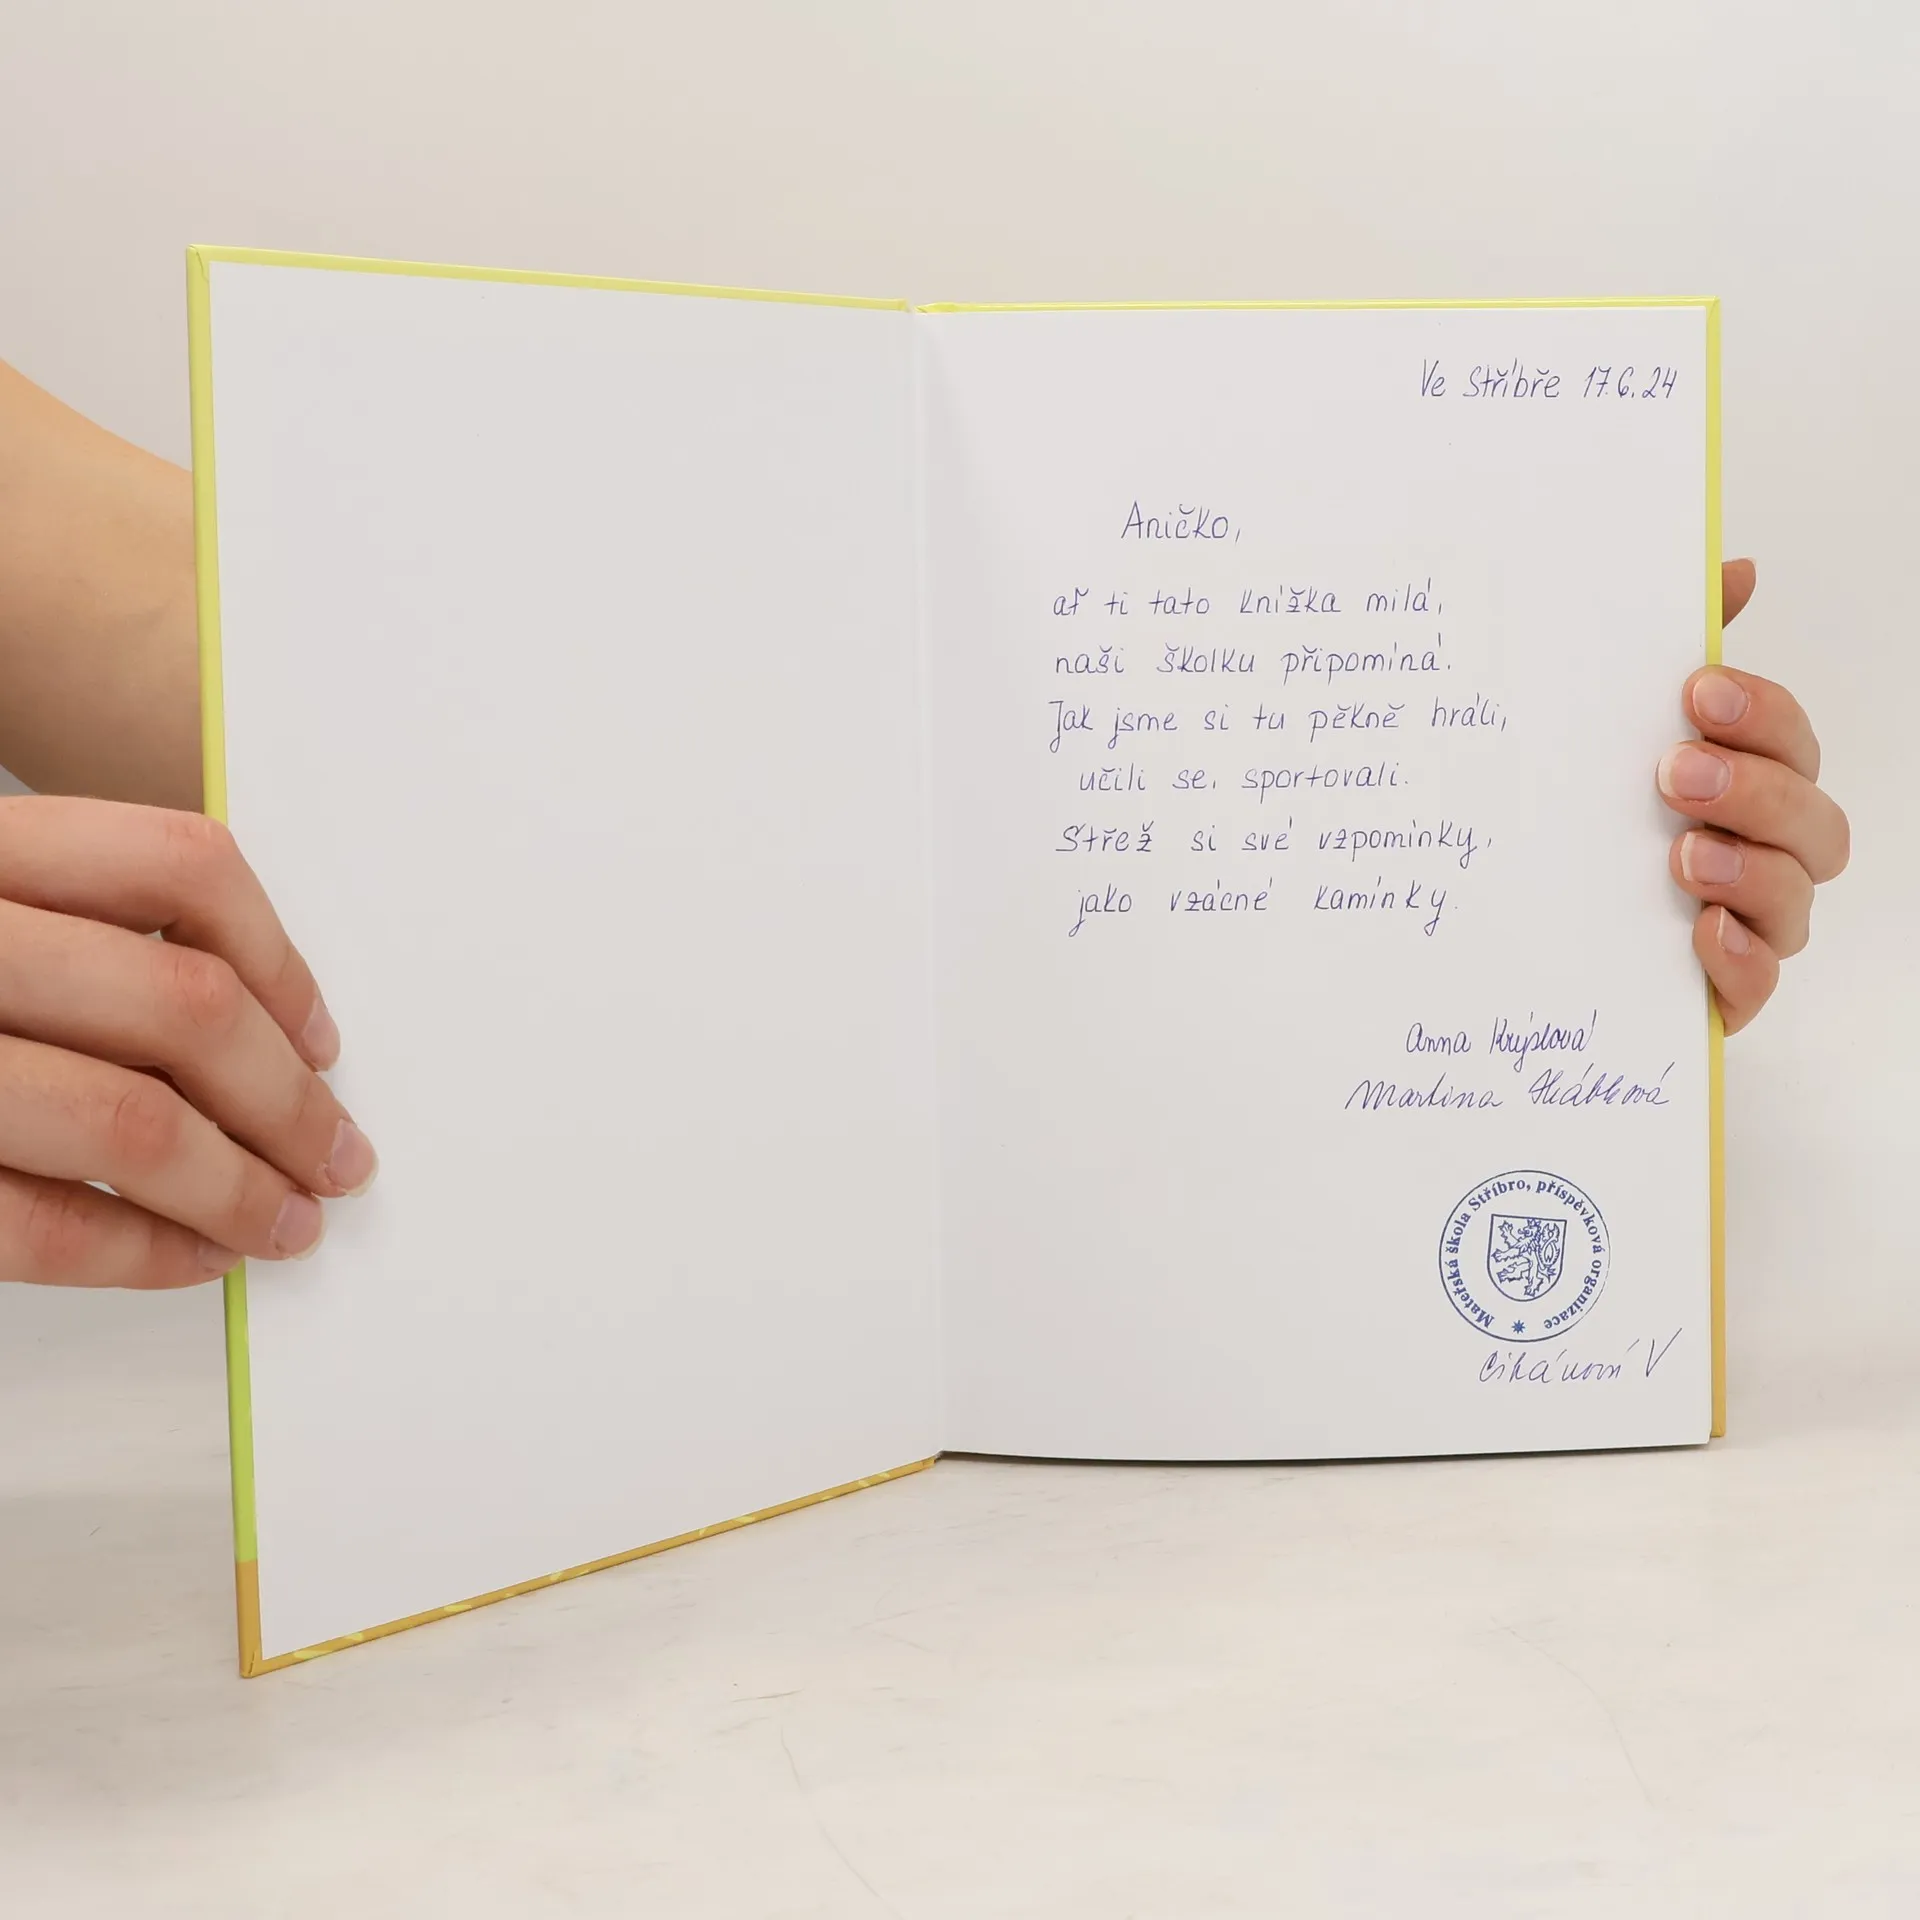 Ve Stříbře 17.6.24
Aničko,
ať ti tato knížka milá,
naši školku připomíná.
Jak jsme si tu pěkně hráli,
učili se, sportovali.
Střež si své vzpomínky,
jako vzácné kamínky.
Anna Krýslová
Martina
Mateřská škola Stříbro, příspěvková organizace